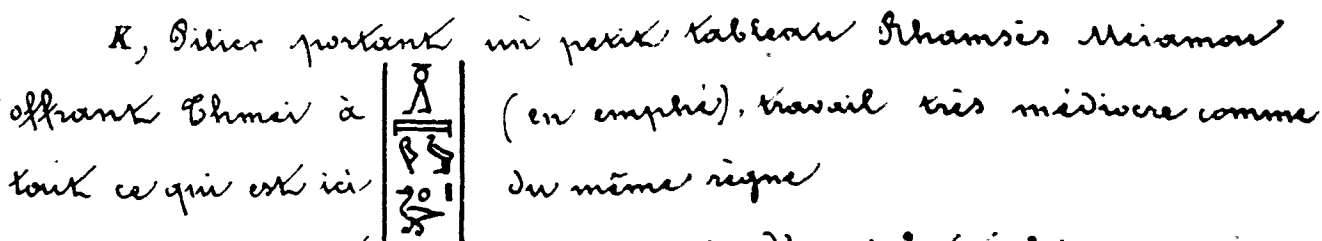 K, Pilier portant un petit tableau Rhamsès Meiamou
offrant Thmei à (en emphé), travail très médiocre comme
tout ce qui est ici du même règne